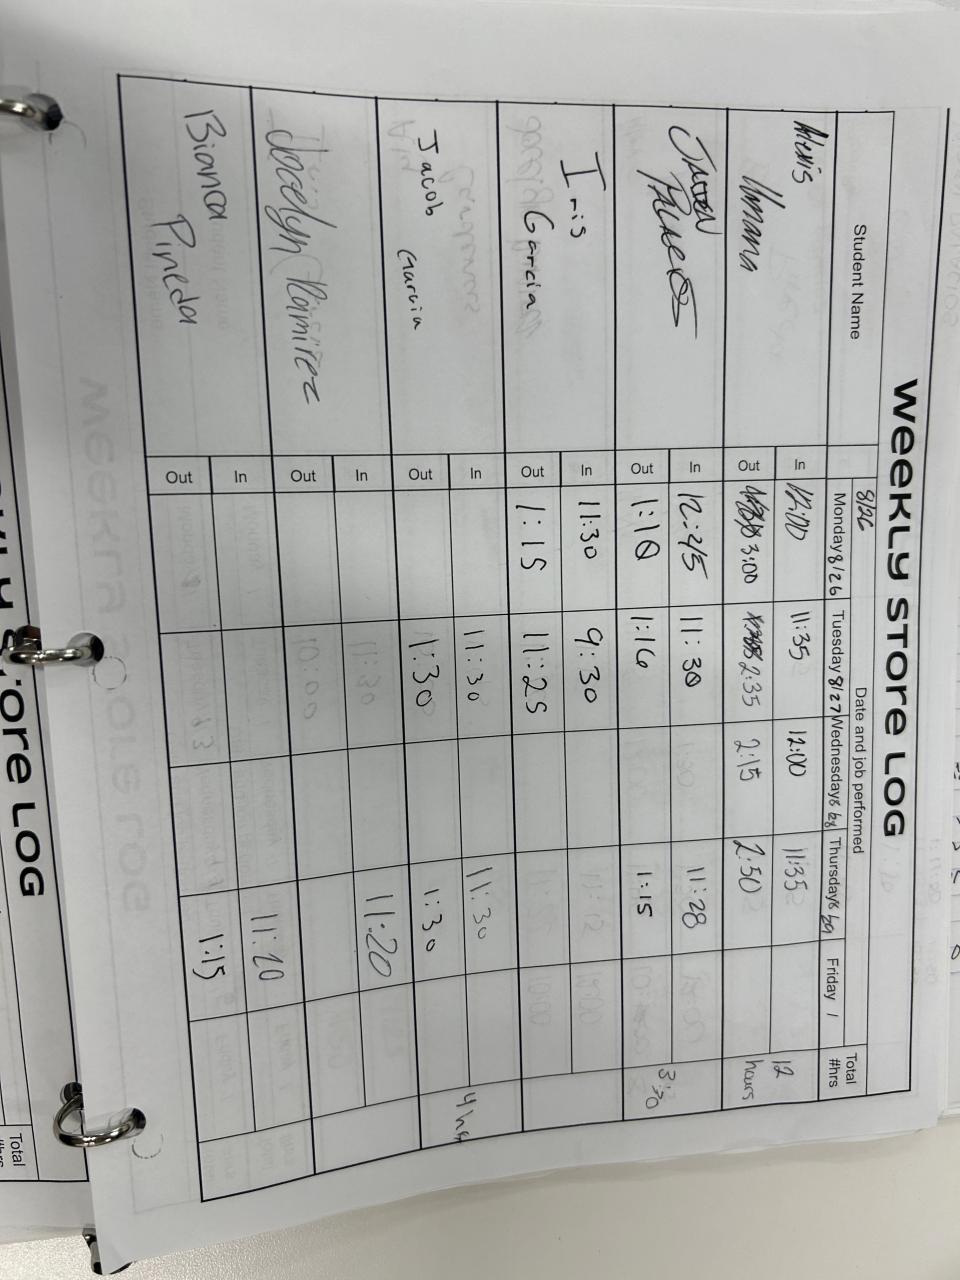 WEEKLY STORE LOG
Student Name
Date and job performed
Total #hrs
8/26
Monday 8/26
Tuesday 8/27
Wednesday 8/28
Thursday 8/29
Friday /
Alexis Umana
In 12:00 11:35 12:00 11:35 12 hours
Out 3:00 2:35 2:15 2:50
In 12:25 11:30 11:28 3:30
Out 1:10 1:16 1:15
Iris Garcia
In 11:30 9:30
Out 1:15 11:25
Jacob Garcia
In 11:30 11:30 4 hrs
Out 1:30 1:30
Jocelyn Ramirez
In 11:20
Out
Bianca Pineda
In 11:20
Out 1:15
ORE LOG
Total